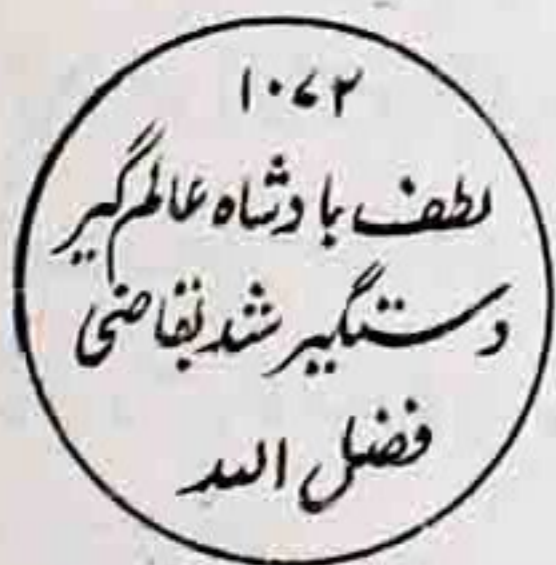 ۱۰۷۲
لطف بادشاه عالم‌گیر
دستگیر شد بقاضی
فضل الله